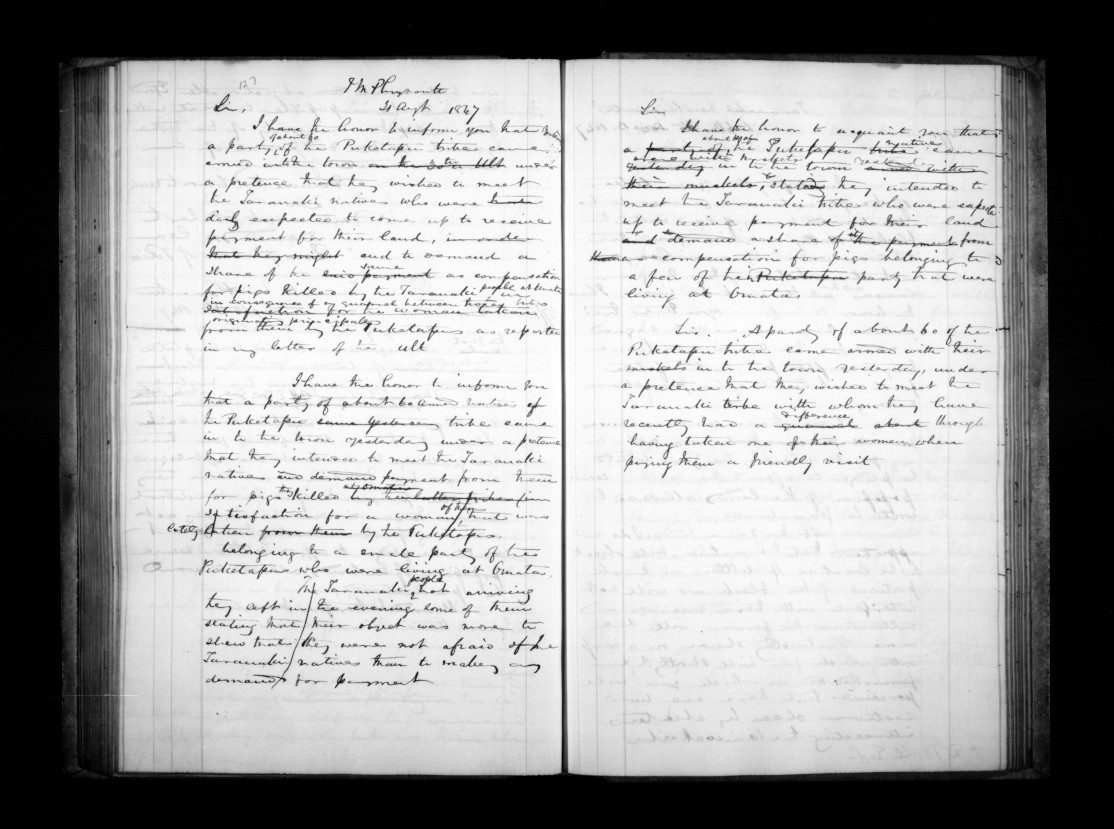 127
N M Plymouth
Sir,
31 Augt 1847
I have the honor to inform you that
a party of the Puketapu tribe came
about 60
armed into the town on the 30th Ult under
a pretence that they wished to meet
the Taranaki natives who were
daily expected to come up to receive
payment for their land, in order
that they might and to demand a
share of the said payment as compensation
same
for pigs killed by the Taranaki
people at Omata
in consequence of a quarrel between these tribes
satisfaction for the woman taken
originating principally
from them by the Puketapus as reported
in my letter of the ult
I have the honor to inform you
that a party of about 60 armed natives of
the Puketapu came yesterday tribe came
in to the town yesterday under a pretence
that they intended to meet the Taranaki
natives and demand payment from them
for pigs killed by the latter tribe (in
satisfaction for a woman that was
of
lately taken from them by the Puketapus.
belonging to a small party of the
Puketapus who were living at Omata.
The Taranaki people not arriving
they left in the evening some of them
stating that their object was more to
shew that they were not afraid of the
Taranaki natives than to making any
demands for payment
Sir
I have the honor to acquaint you that
about 60 of
a party of the Puketapu tribe came
natives
were with muskets
yesterday in to the town armed with
yesterday
their muskets, & stated they intended to
meet the Taranaki tribes who were expected
up to receive payment for their land
and to demand a share of the payment from
them as compensation for pigs belonging to
a few of the Puketapu party that were
living at Omata
Sir. A party of about 60 of the
Puketapu tribe came armed with their
muskets in to the town yesterday, under
a pretence that they wished to meet the
Taranaki tribe with whom they have
difference
recently had a quarrel about through
having taken one of their women when
paying them a friendly visit